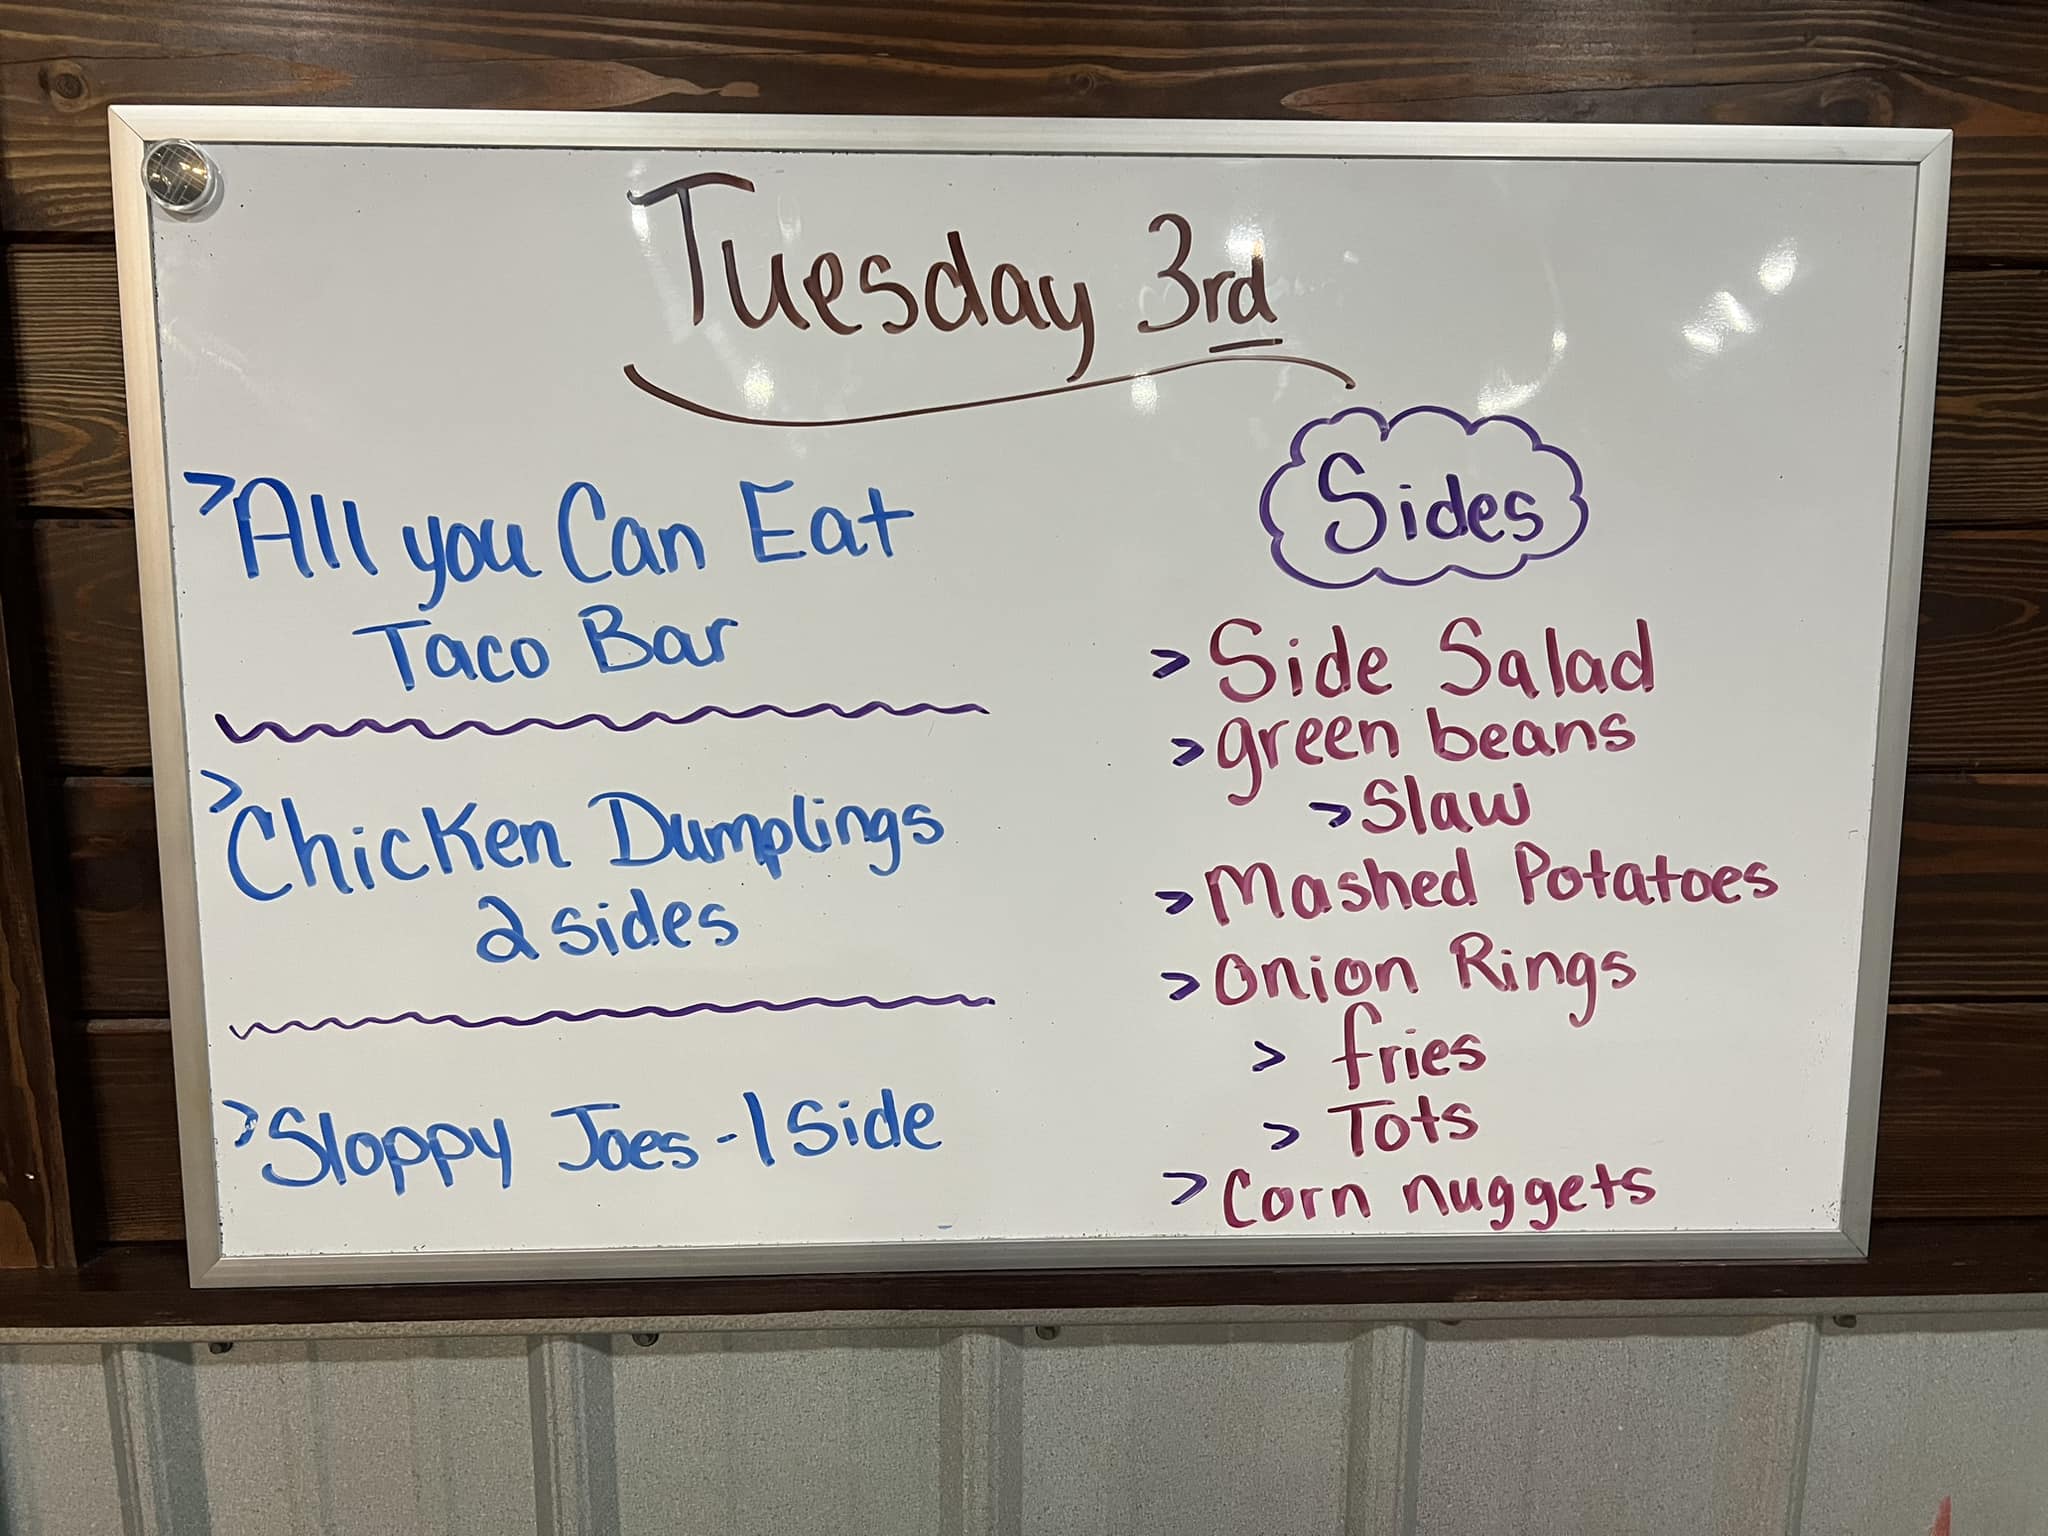 Tuesday 3rd
>All you Can Eat
Taco Bar
>Chicken Dumplings
2 sides
>Sloppy Joes -1 Side
Sides
> Side Salad
> green beans
> Slaw
> Mashed Potatoes
> Onion Rings
> fries
> Tots
> Corn nuggets